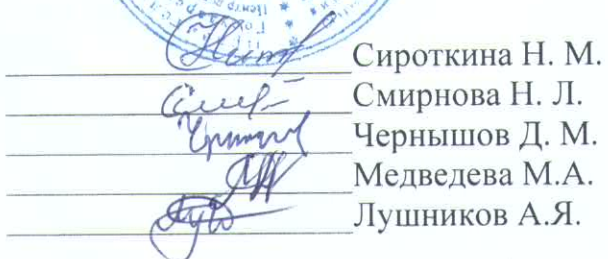 Сироткина Н. М.
Смирнова Н. Л.
Чернышов Д. М.
Медведева М.А.
Лушников А.Я.